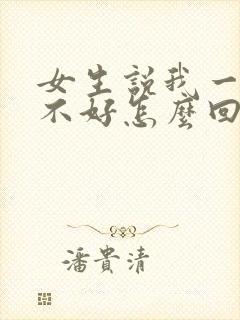 女生説我一
不好怎麽回
潘貴清